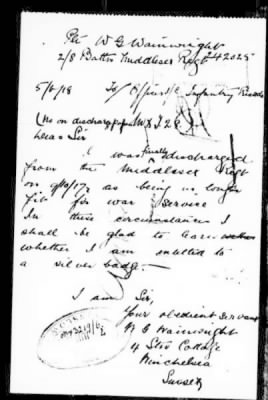 Pte W G Wainwright
2/8 Battn Middlesex Regt 242025
5/6/18 To Officer i/c Infantry Records
(No on discharge paper
Dear Sir
I was finally discharged
from the Middlesex Regt
on as being no longer
fit for war service
In these circumstances I
shall be glad to learn
whether I am entitled to
a silver badge.
I am Sir,
Your obedient servant
W G Wainwright
4 Cottage
Winchelsea
Sussex